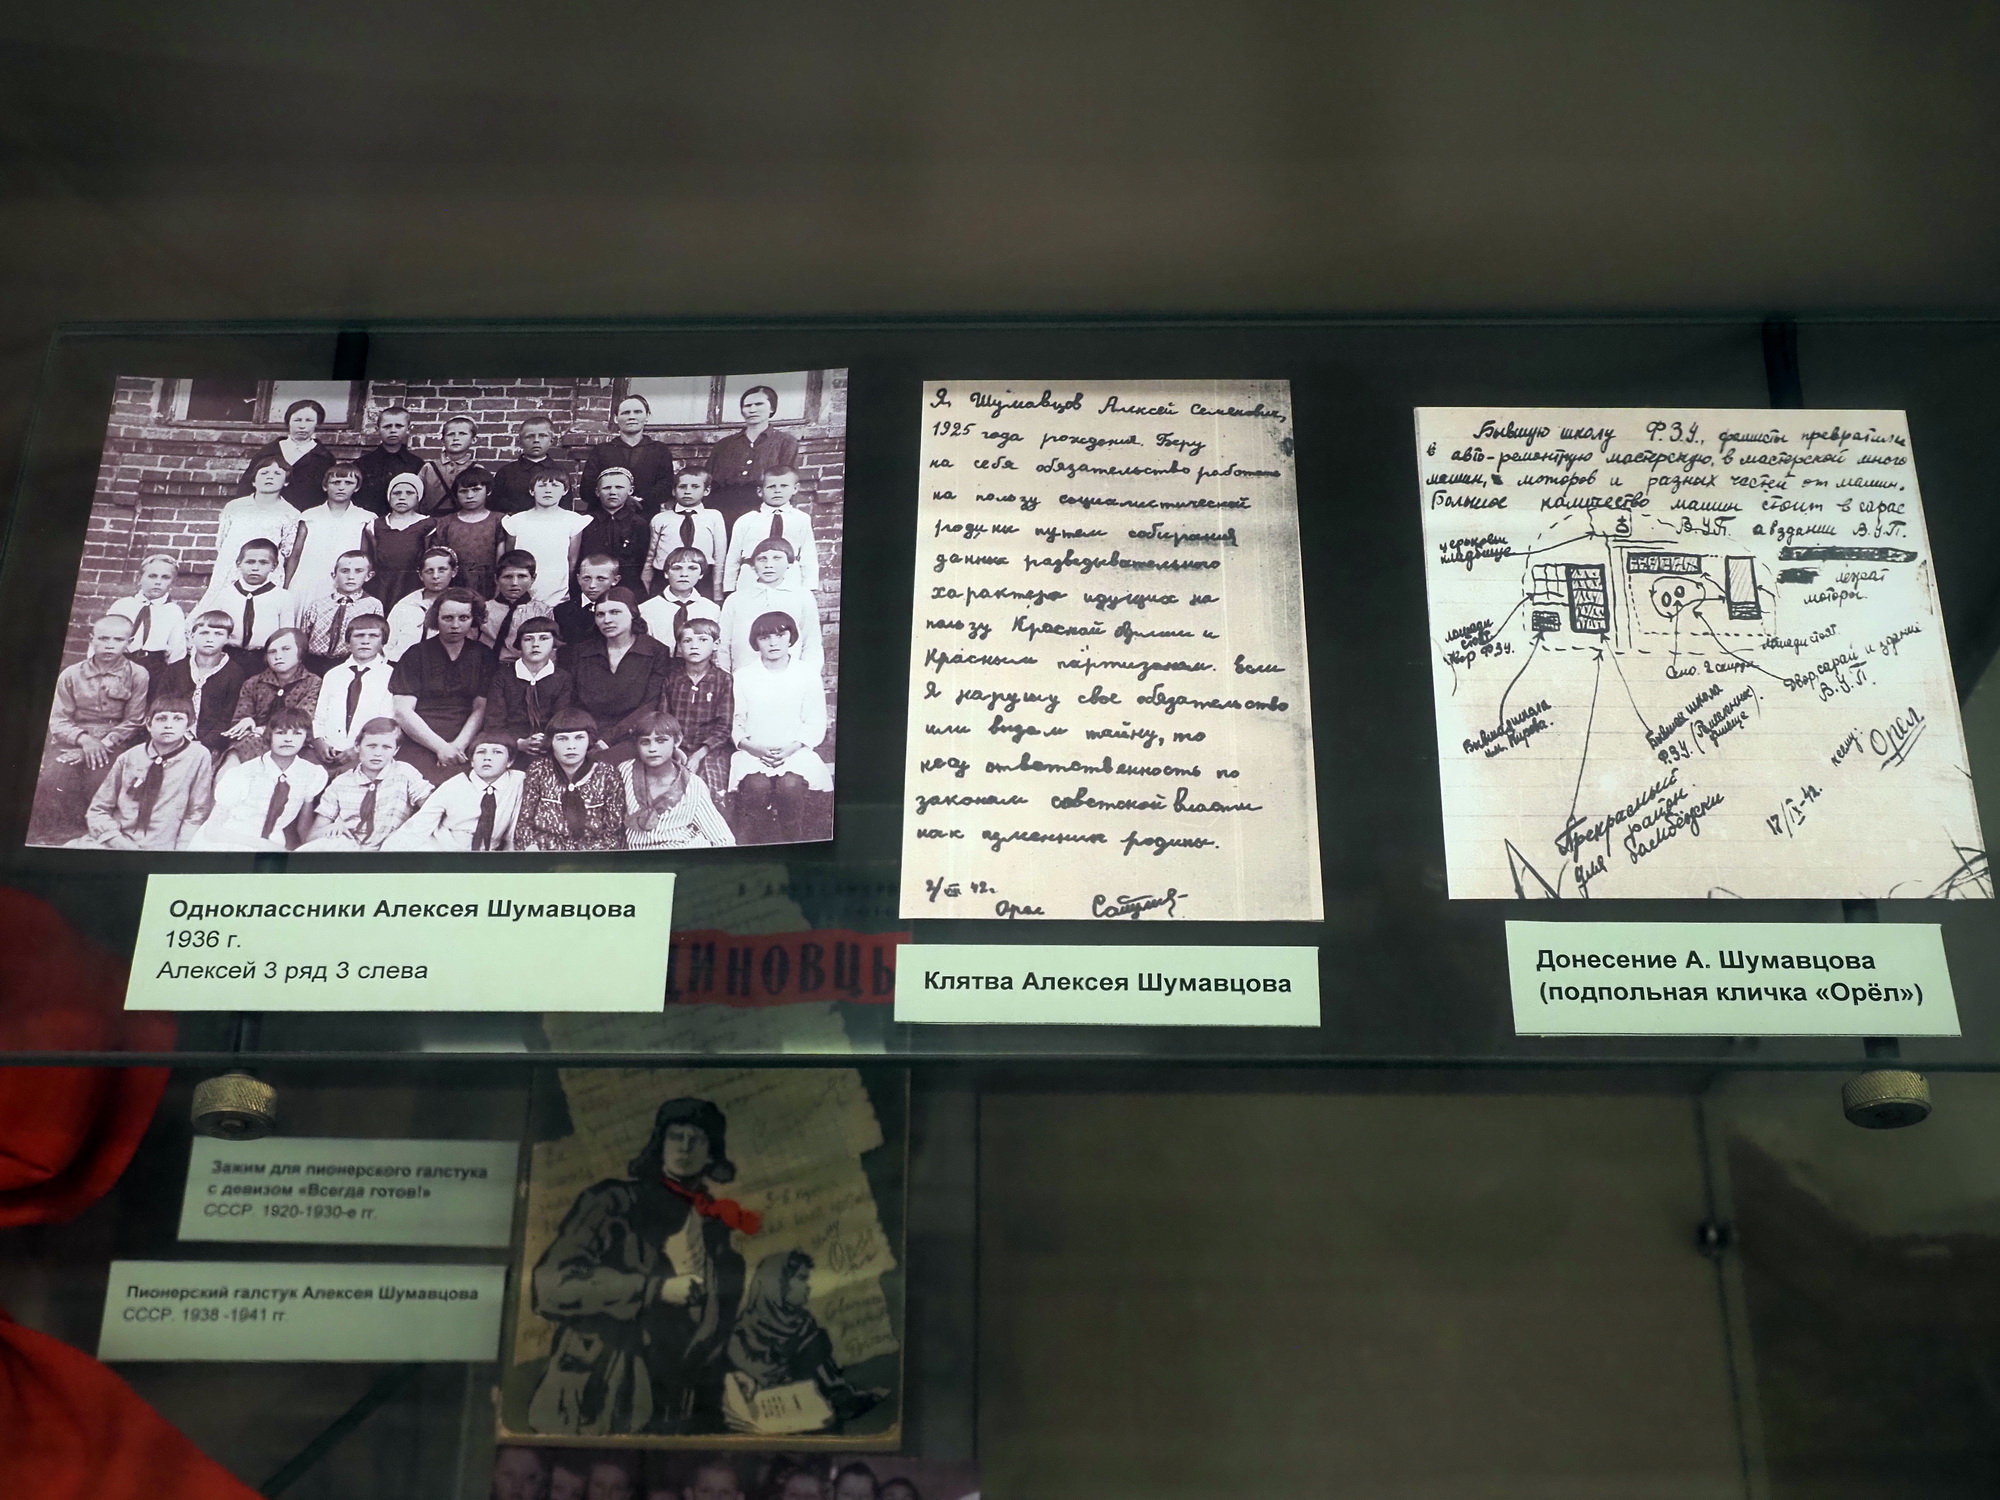 Я, Шумавцов Алексей Семенович,
1925 года рождения. Беру
на себя обязательство работать
на пользу социалистической
родины путем собирания
данных разведывательного
характера идущих на
пользу Красной Армии и
Красным партизанам. Если
Я нарушу свое обязательство
или выдам тайну, то
несу ответственность по
законам советской власти
как изменник родины.
42г.
Орел
Бывшую школу Ф.З.У., фашисты превратили
в авто-ремонтную мастерскую, в мастерской много
машин, моторов и разных частей от машин.
Большое количество машин стоит в сарае
В.У.П. а в здании В.У.П.
лежат
моторы.
церковь
кладбище
лошади
стоят
двор Ф.З.У.
лошади стоят.
двор, сарай и здание
В.У.П.
Бывшая школа
им. Кирова.
Бывшая школа
Ф.З.У.
Прекрасный
район
для бомбёжки
17/IX-42.
Орел
Одноклассники Алексея Шумавцова
1936 г.
Алексей 3 ряд 3 слева
Клятва Алексея Шумавцова
Донесение А. Шумавцова
(подпольная кличка «Орёл»)
ДИНОВЦЫ
Зажим для пионерского галстука
с девизом «Всегда готов!»
СССР. 1920-1930-е гг.
Пионерский галстук Алексея Шумавцова
СССР. 1938 -1941 гг.